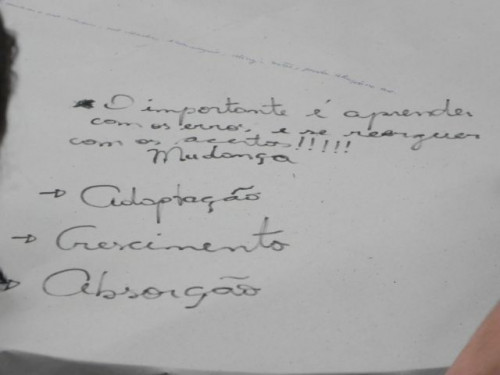 * O importante é aprender
com os erros, e se reerguer
com os acertos!!!!!
Mudança
→ Adaptação
→ Crescimento
→ Absorção